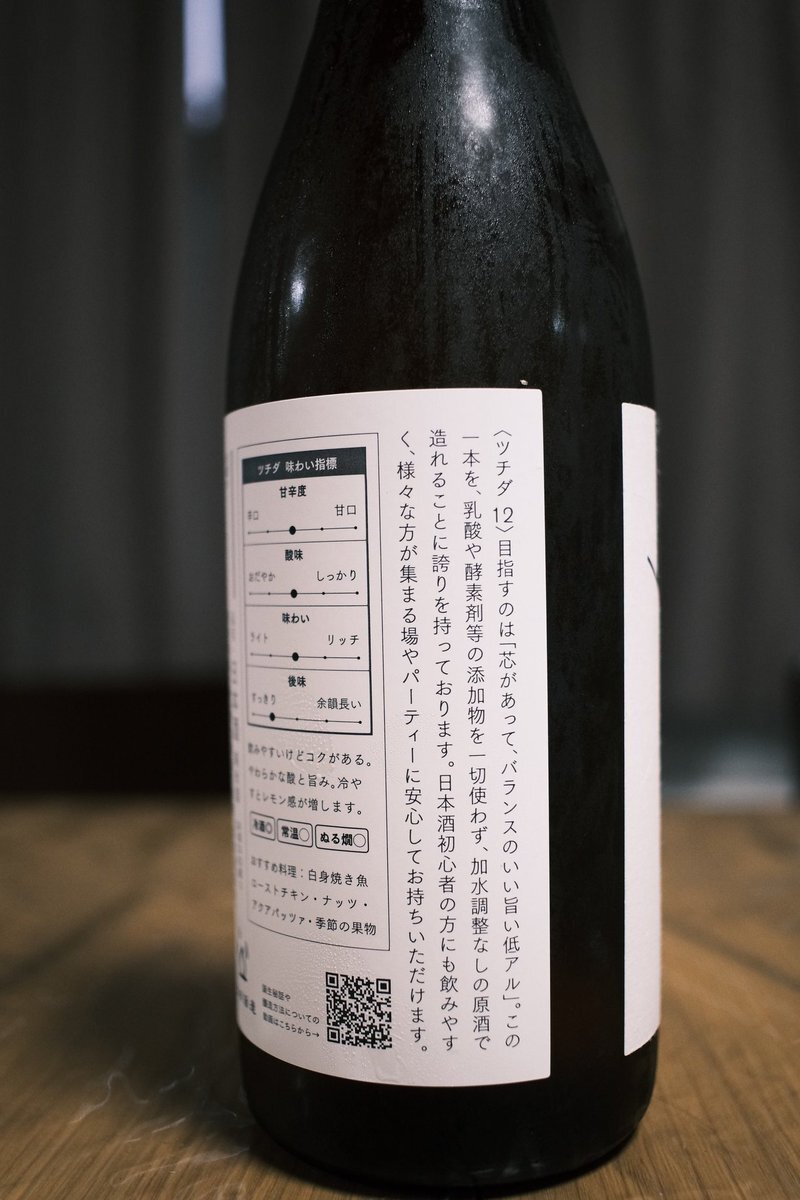 〈ツチダ 12〉目指すのは「芯があって、バランスのいい旨い低アル」。この
一本を、乳酸や酵素剤等の添加物を一切使わず、加水調整なしの原酒で
造れることに誇りを持っております。日本酒初心者の方にも飲みやす
く、様々な方が集まる場やパーティーに安心してお持ちいただけます。
ツチダ 味わい指標
甘辛度
辛口 甘口
酸味
おだやか しっかり
味わい
ライト リッチ
後味
すっきり 余韻長い
飲みやすいけどコクがある。
やわらかな酸と旨み。冷や
すとレモン感が増します。
冷酒◎ 常温○ ぬる燗○
おすすめ料理:白身焼き魚
ローストチキン・ナッツ・
アクアパッツァ・季節の果物
誕生秘話や
醸造方法についての
動画はこちらから→